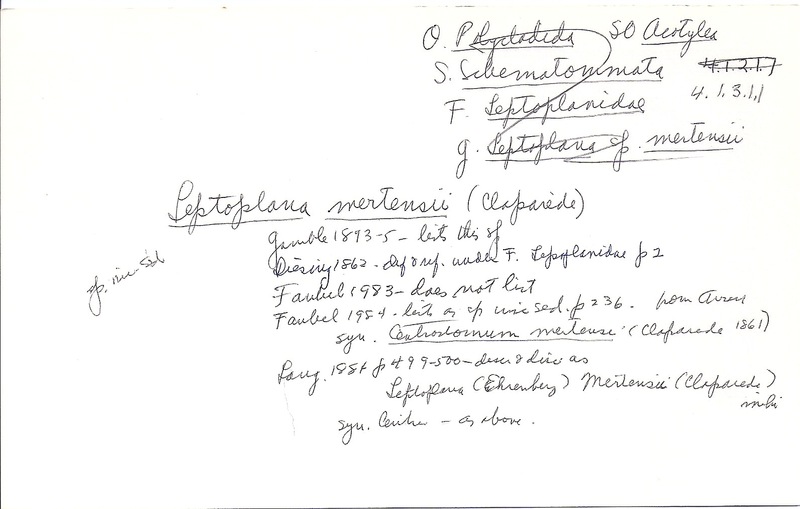 O. Polycladida SO Acotylea
S. Schematommata 4.1.2.1.7
4.1.3.1.1
F. Leptoplanidae
g. Leptoplana sp. mertensii
Leptoplana mertensii (Claparède)
Gamble 1893-5 - lists this sp
Diesing 1862 - def & ref. under F. Leptoplanidae p 2
sp. inc. sed.
Faubel 1983 - does not list
Faubel 1984 - lists as sp inc sed. p 236. from
syn. Centrostomum mertensi (Claparede 1861)
Lang. 1884 p 499-500 - descr & disc as
Leptoplana (Ehrenberg) Mertensii (Claparede)
mihi
syn. Centro - as above.